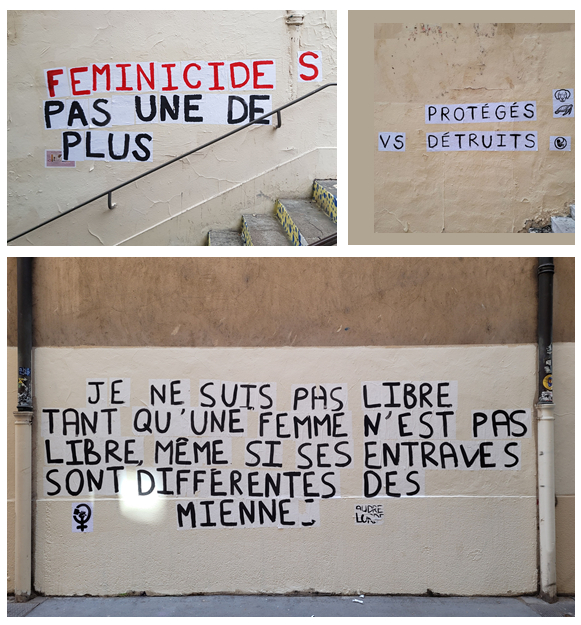 FEMINICIDE S
PAS UNE DE
PLUS
PROTÉGÉS
VS DÉTRUITS
JE NE SUIS PAS LIBRE
TANT QU'UNE FEMME N'EST PAS
LIBRE, MÊME SI SES ENTRAVES
SONT DIFFÉRENTES DES
MIENNES
AUDRE